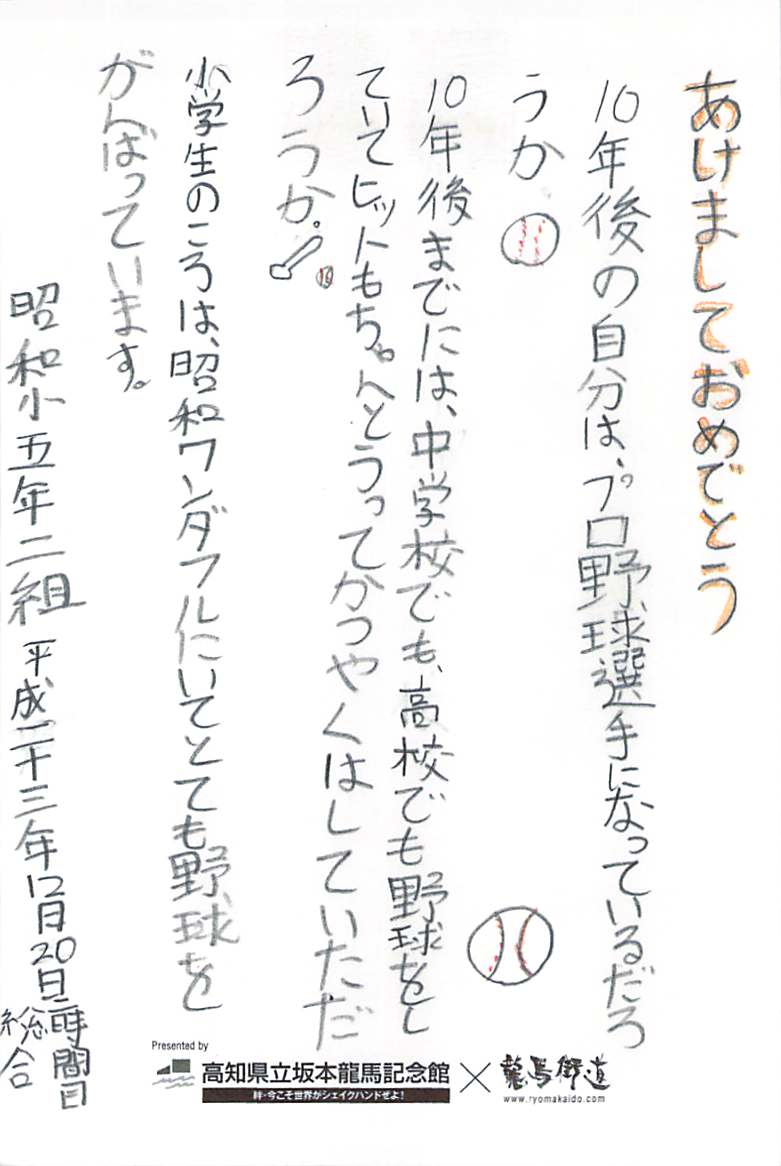 あけましておめでとう
10年後の自分は、プロ野球選手になっているだろ
うか、
10年後までには、中学校でも、高校でも野球をし
ていてヒットもちゃんとうってかつやくはしていただ
ろうか。
小学生のころは、昭和ワンダフルにいてとても野球を
がんばっています。
昭和小五年二組 平成二十三年12月20日二時間目
総合
Presented by
高知県立坂本龍馬記念館×龍馬街道
絆・今こそ世界がシェイクハンドぜよ!
www.ryomakaido.com